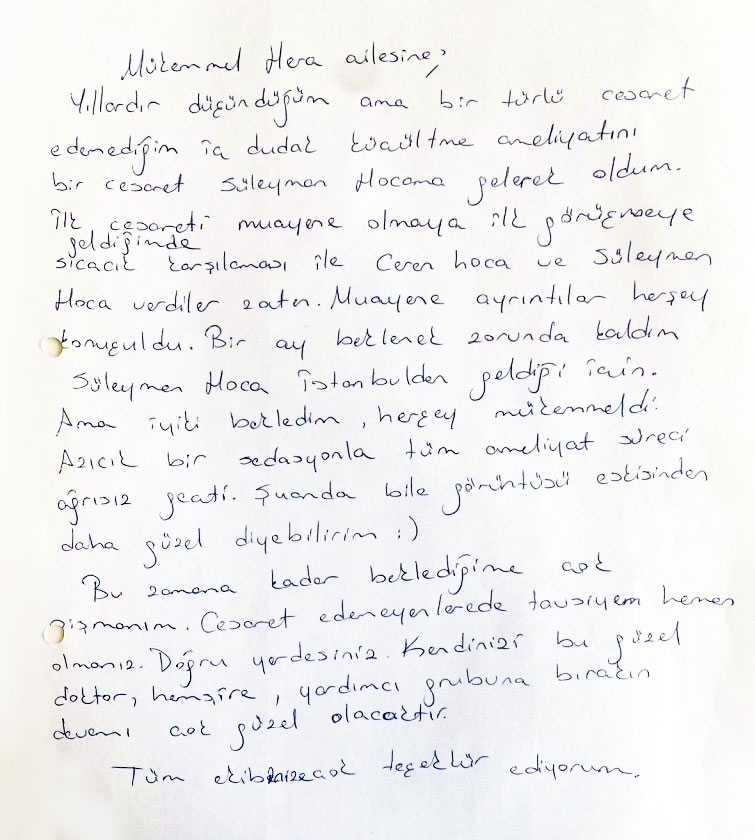 Mükemmel Hera ailesine;
Yıllardır düşündüğüm ama bir türlü cesaret
edemediğim iç dudak küçültme ameliyatını
bir cesaret Süleyman Hocama gelerek oldum.
İlk cesareti muayene olmaya ilk görüşmeye
geldiğimde
sıcacık karşılaması ile Ceren hoca ve Süleyman
Hoca verdiler zaten. Muayene ayrıntılar herşey
konuşuldu. Bir ay beklemek zorunda kaldım
Süleyman Hoca İstanbulden geldiği için.
Ama iyiki bekledim, herşey mükemmeldi.
Azıcık bir sedasyonla tüm ameliyat süreci
ağrısız geçti. Şuanda bile görüntüsü eskisinden
daha güzel diyebilirim :)
Bu zamana kadar beklediğime çok
pişmanım. Cesaret edemeyenlerede tavsiyem hemen
olmanız. Doğru yerdesiniz. Kendinizi bu güzel
doktor, hemşire, yardımcı grubuna bırakın
devamı çok güzel olacaktır.
Tüm ekibinize çok teşekkür ediyorum.